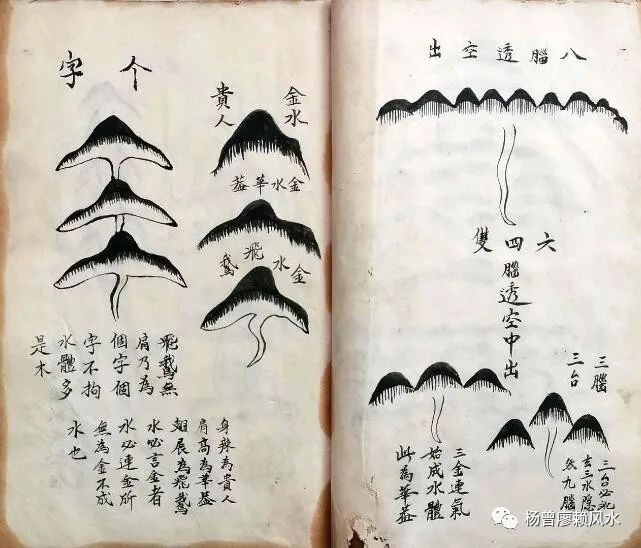 八腦透空出
六四雙
腦透空中出
三腦
三台
三台必
去三水隱
九腦
三金連氣
始成水體
此為華葢
金水
貴人
金水華葢
金水飛鵞
个字
飛鵞無
肩乃為
個字個
字不拘
水體多
是木
身為貴人
肩高為華葢
翅展為飛鵞
水必言金者
水必連金所
無為金不成
水也
杨曾廖赖风水